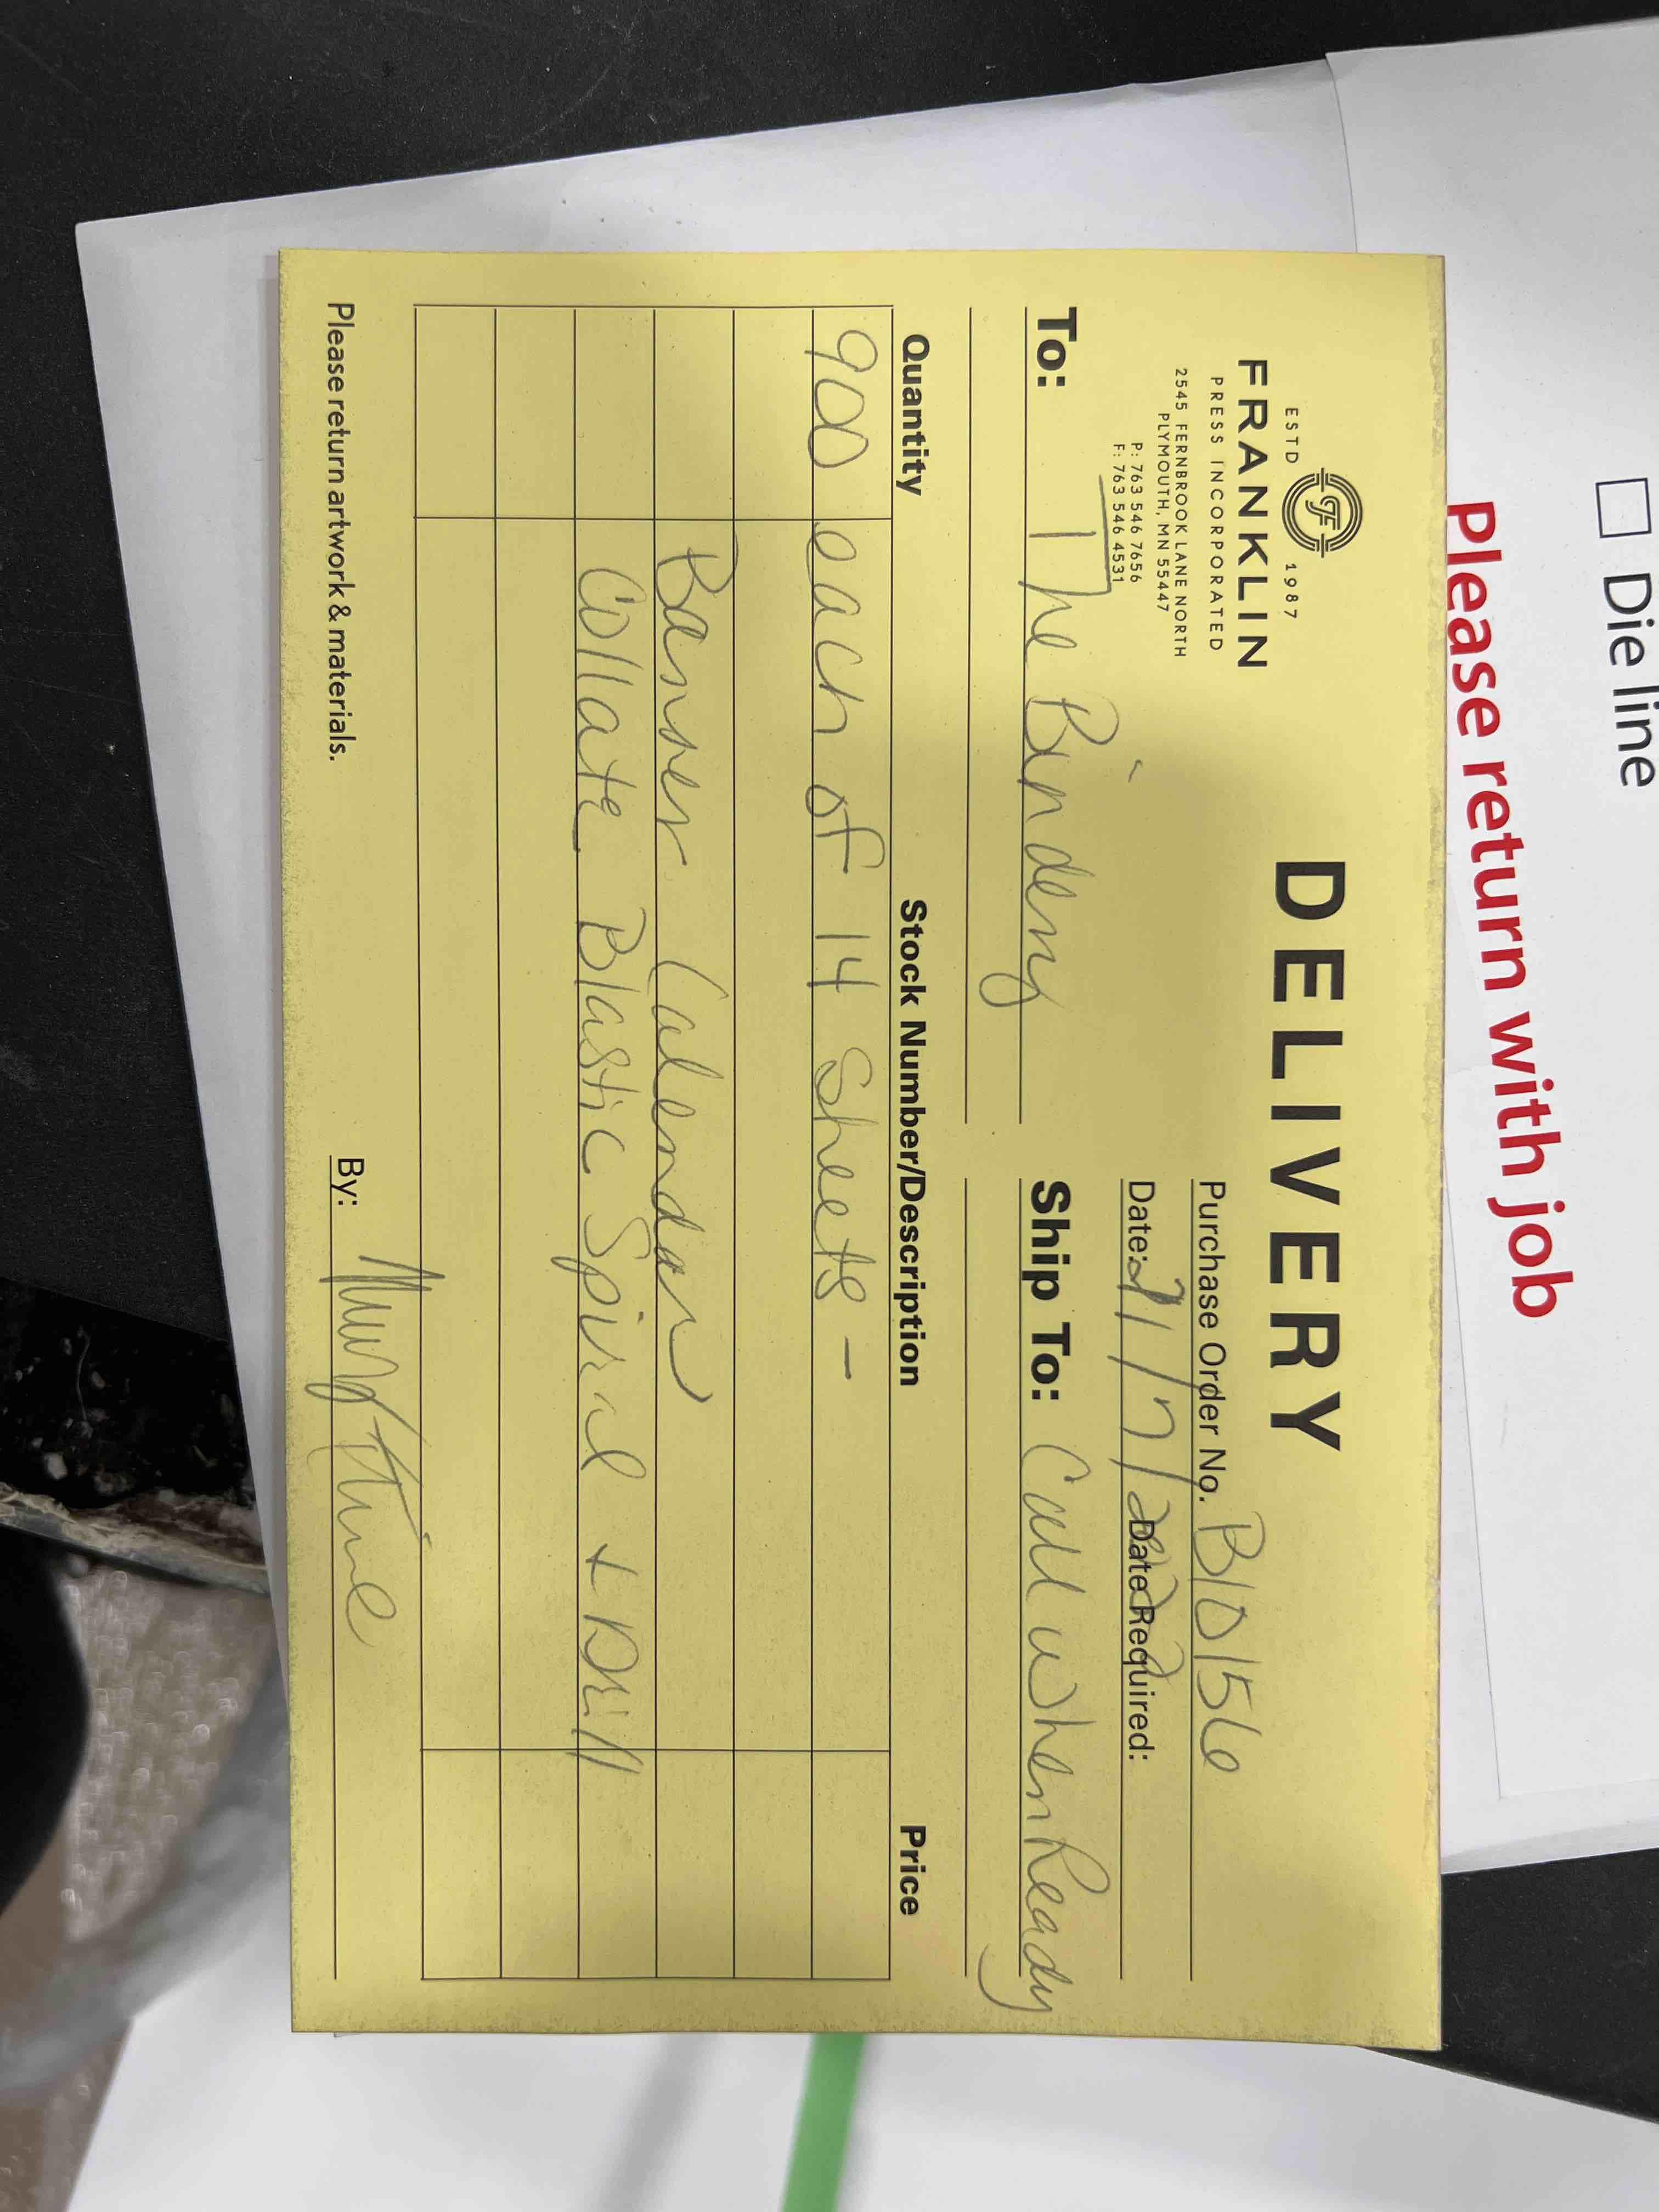 Die line
Please return with job
DELIVERY
ESTD 1987
FRANKLIN
PRESS INCORPORATED
2545 FERNBROOK LANE NORTH
PLYMOUTH, MN 55447
P: 763 546 7656
F: 763 546 4531
Purchase Order No. B10156
Date: Date Required:
To: The Bindery
Ship To: Call when Ready
Quantity Stock Number/Description Price
900 each of 14 sheets -
Banner Calendar
Collate Plastic Spiral + Drill
Please return artwork & materials. By: